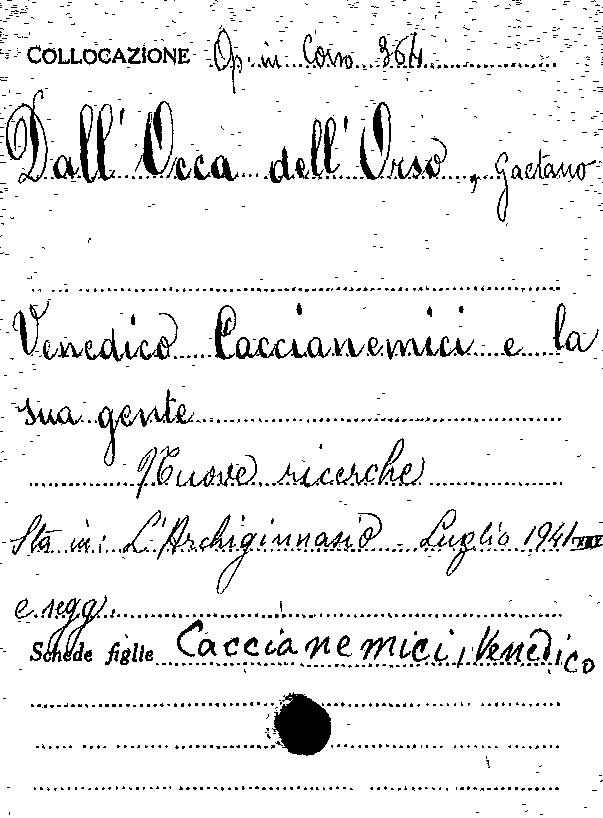 COLLOCAZIONE Op. in Corso 364
Dall'Occa dell'Orso, Gaetano
Venedico Caccianemici e la
sua gente
Nuove ricerche
Sta in: L'Archiginnasio - Luglio 1941
e segg.
Schede figlie Caccianemici, Venedico